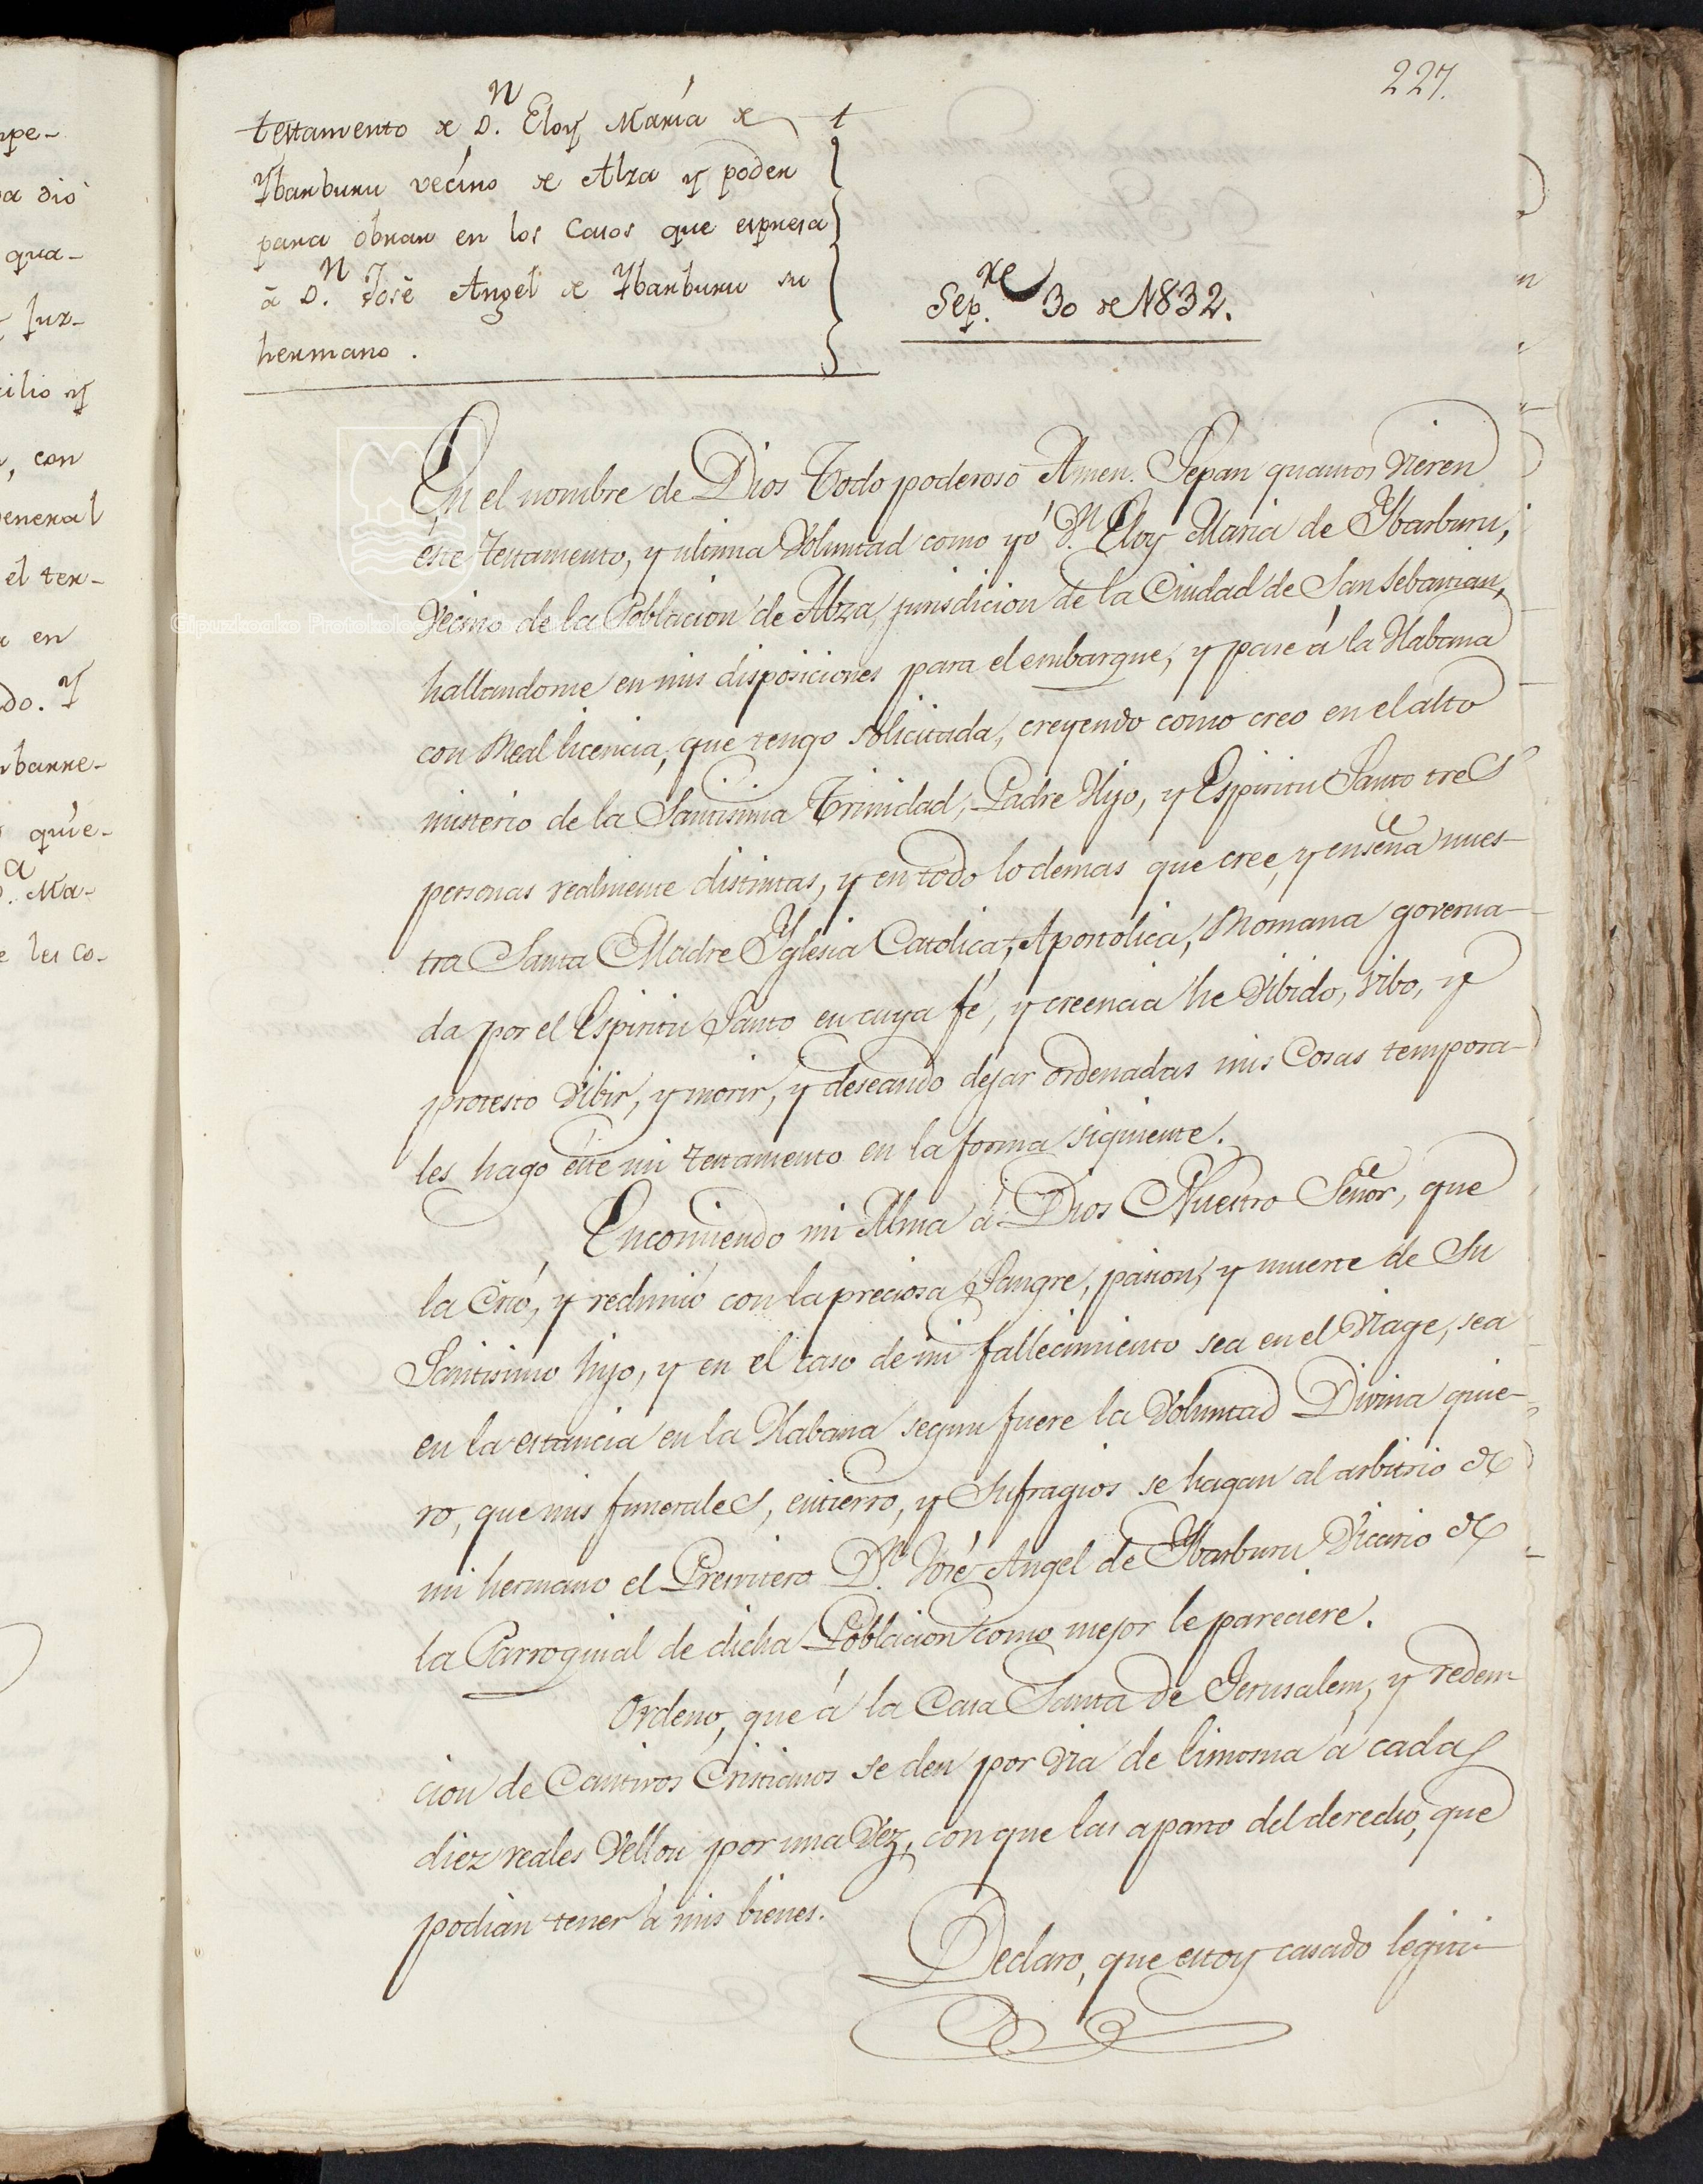 227.
testamento de D.n Eloy María de
Ybarburu vecino de Alza y poder
para obrar en los casos que espresa
á D.n José Angel de Ybarburu su
hermano.
t
Sep.re 30 de 1832.
En el nombre de Dios Todo poderoso Amen. Sepan quantos vieren
éste Testamento, y ultima Voluntad como yó D.n Eloy Maria de Ybarburu,
Vecino de la Poblacion de Alza, jurisdicion de la Ciudad de San Sebastian,
hallandome en mis disposiciones para el embarque, y pase á la Habana
con Real licencia, que tengo solicitada, creyendo como creo en el alto
misterio de la Santisima Trinidad, Padre Hijo, y Espiritu Santo tres
personas realmente distintas, y en todo lo demas que cree, y enseña nues-
tra Santa Madre Yglesia Catolica, Apostolica, Romana governa-
da por el Espiritu Santo en cuya fé, y creencia he vibido, vibo, y
protesto vibir, y morir, y deseando dejar ordenadas mis Cosas tempora-
les hago éste mi testamento en la forma siguiente.
Encomiendo mi Alma á Dios Nuestro Señor, que
la Crió, y redimió con la preciosa Sangre, pasion, y muerte de Su
Santisimo hijo, y en el caso de mi fallecimiento sea en el Viage, sea
en la estancia en la Habana segun fuere la Voluntad Divina quie-
ro, que mis funerales, entierro, y Sufragios se hagan al arbitrio de
mi hermano el Presvitero D.n José Angel de Ybarburu Vicario de
la Parroquial de dicha Poblacion como mejor le pareciere.
Ordeno, que á la Casa Santa de Jerusalem, y redem-
cion de Cautivos Cristianos se den por via de limosna á cada
diez reales Vellon por una Vez, con que las aparto del derecho, que
podian tener á mis bienes.
Declaro, que estoy casado legiti-
rpe-
a dió
qua-
jux-
cilio y
, con
general
el ter-
en
do. Y
barre-
quie-
a
. Ma-
e les co-